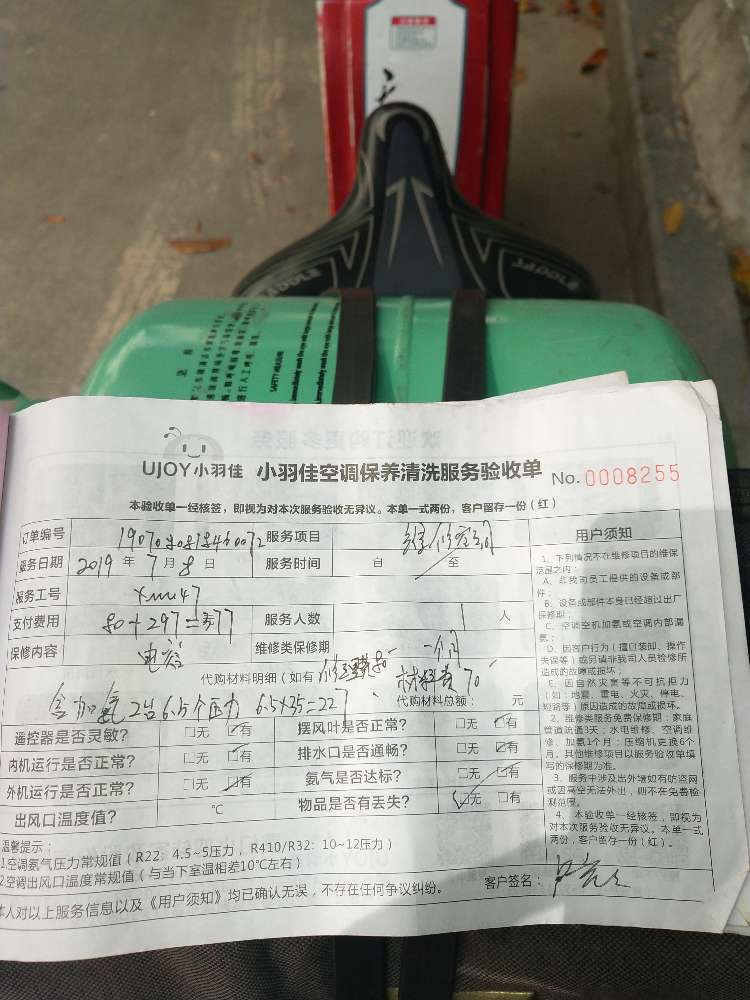 SADDLE
SAFETY MEASURE
UJOY小羽佳 小羽佳空调保养清洗服务验收单 No. 0008255
本验收单一经核签，即视为对本次服务验收无异议。本单一式两份，客户留存一份（红）
订单编号 服务项目
服务日期 2019 年 7 月 8 日 服务时间 自 至
服务工号 Xmn47
支付费用 80+297=377 服务人数 1 人
保修内容 电容 维修类保修期 一个月
代购材料明细（如有 修理费80 材料费70
含加氨2台6.5个压力 6.5×35=227 代购材料总额： 元
遥控器是否灵敏？ □无 □有 摆风叶是否正常？ □无 □有
内机运行是否正常？ □无 □有 排水口是否通畅？ □无 □有
外机运行是否正常？ □无 □有 氨气是否达标？ □无 □有
出风口温度值？ ℃ 物品是否有丢失？ □无 □有
用户须知
1、下列情况不在维修项目的维保
范围之内：
A、非我司员工提供的设备或部
件；
B、设备或部件本身已经超过出厂
保修期；
C、空调空机加氨或空调内部漏
氨；
D、因客户行为（擅自装卸、操作
失误等）或另请非我司人员检修所
造成的故障或损坏；
E、因自然灾害等不可抗拒力
（如：地震、雷电、火灾、停电、
短路等）原因造成的故障或损坏。
2、维修类服务免费保修期：家庭
管道疏通3天；水电维修、空调维
修、加氨1个月；压缩机更换6个
月。其他维修项目以服务验收单填
写的保修期为准。
3、服务中涉及出外墙如有防盗网
或因高空无法外出，则不在免费检
测范围。
4、本验收单一经核签，即视为
对本次服务验收无异议。本单一式
两份，客户留存一份（红）。
温馨提示：
1.空调氨气压力常规值（R22：4.5~5压力，R410/R32：10~12压力）
2.空调出风口温度常规值（与当下室温相差10℃左右）
本人对以上服务信息以及《用户须知》均已确认无误，不存在任何争议纠纷。 客户签名：